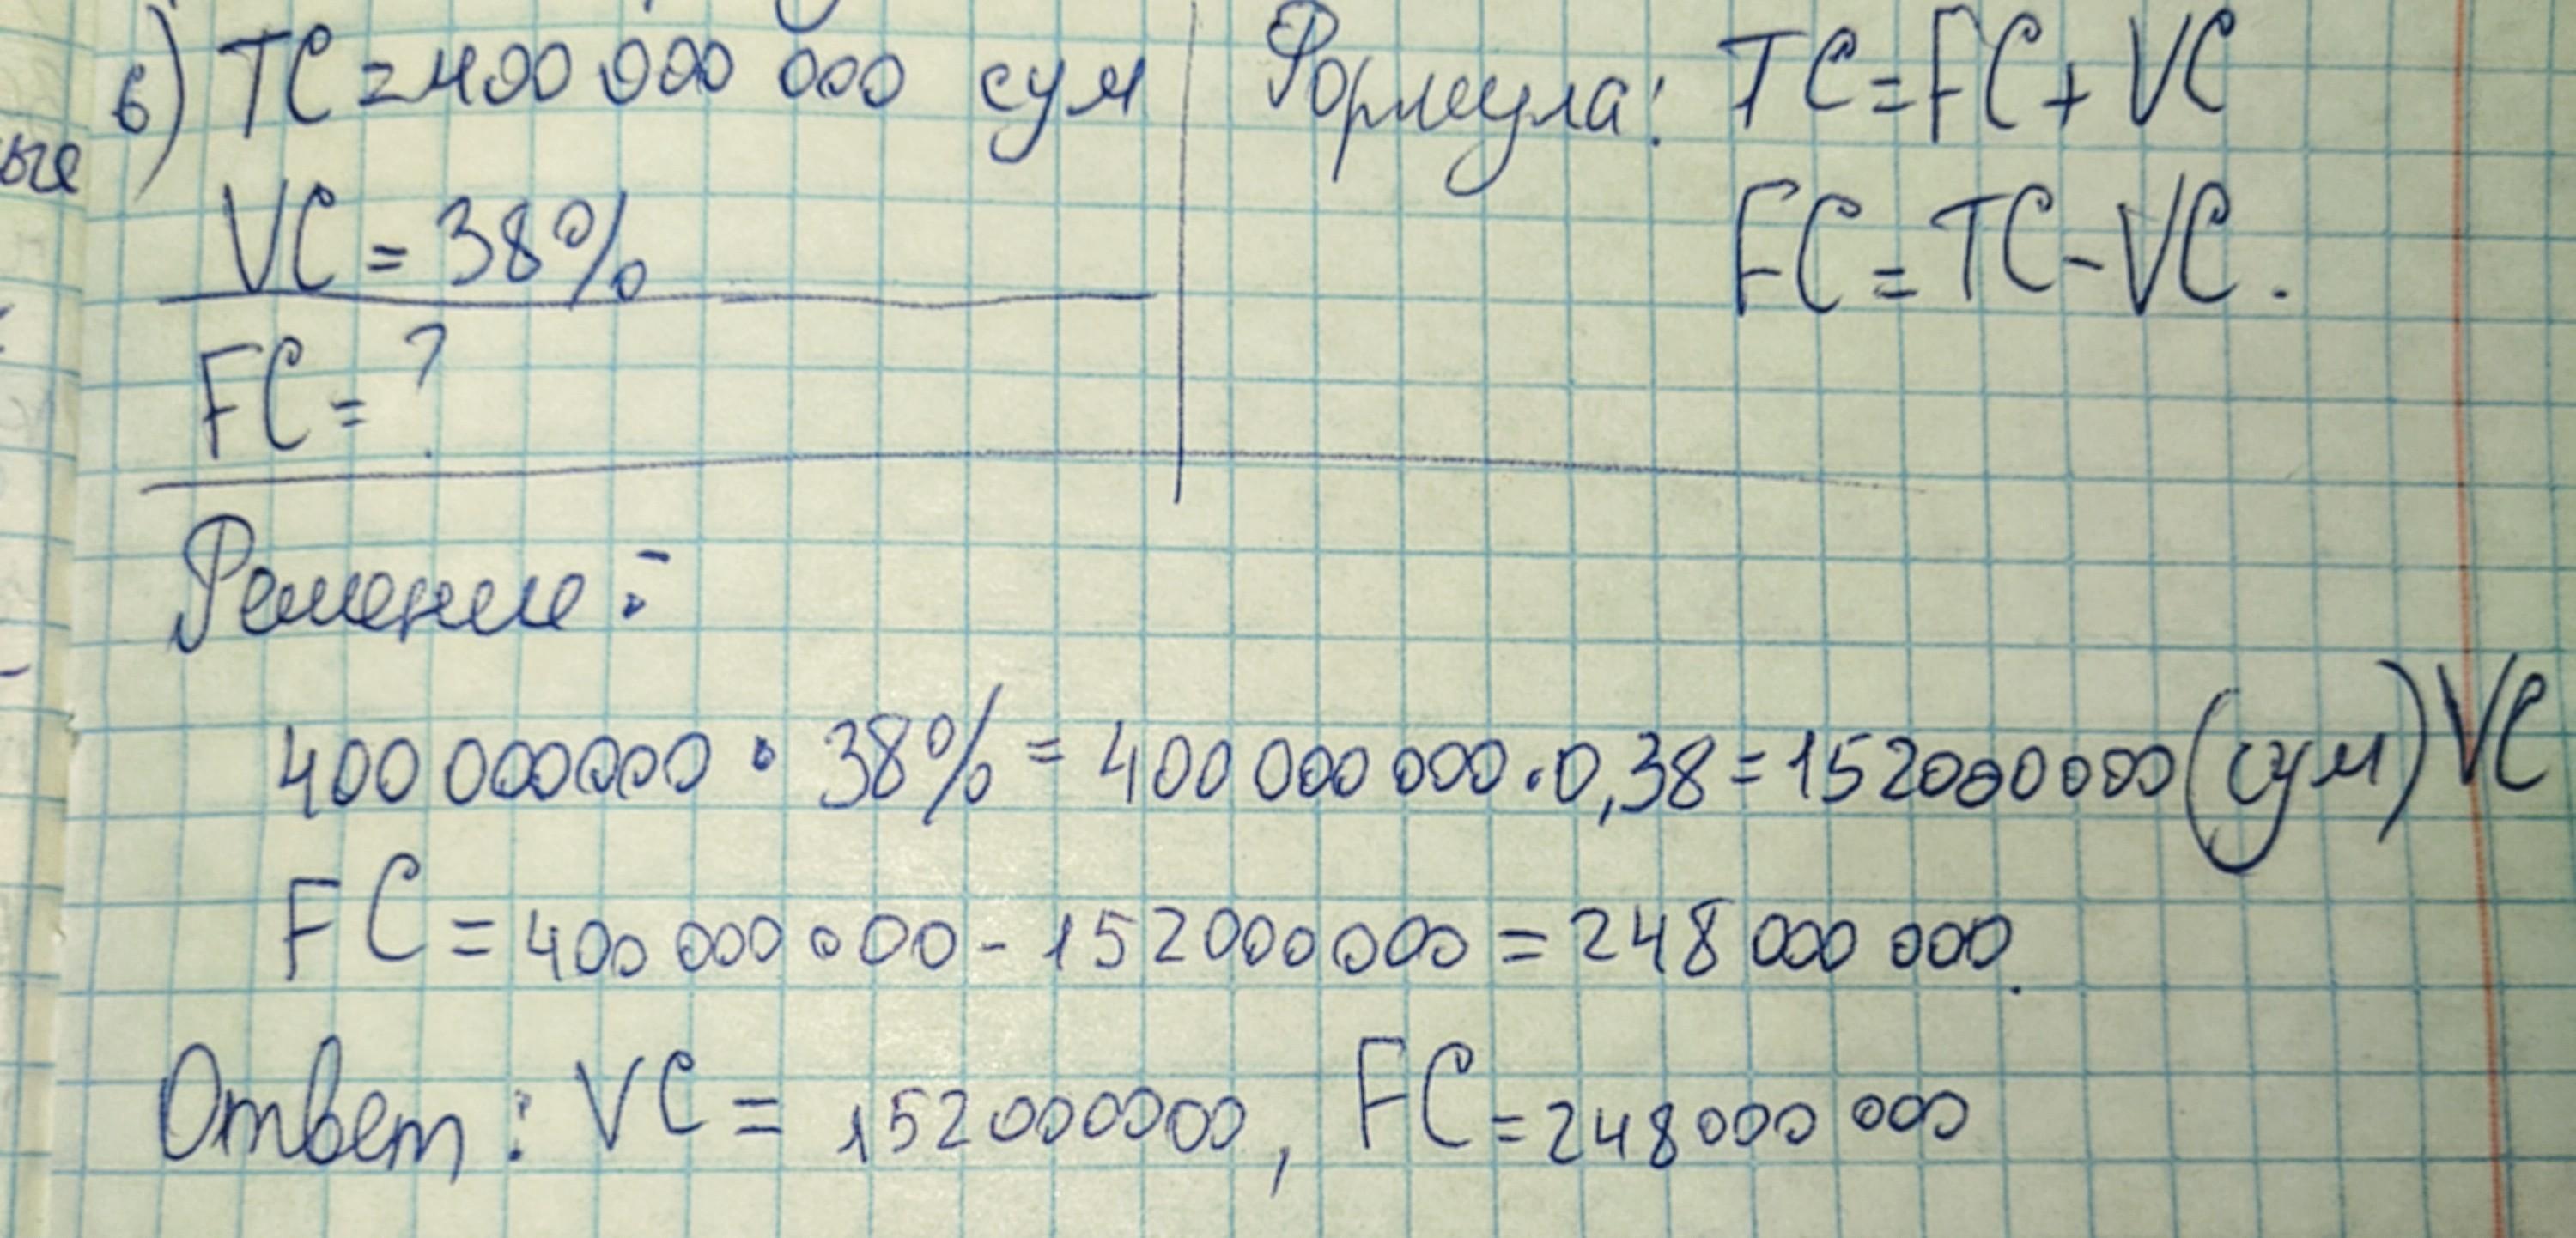 6) TC = 400 000 000 сум
VC = 38%
FC = ?
Формула: TC = FC + VC
FC = TC - VC.
Решение:
400 000000 • 38% = 400 000 000 • 0,38 = 152000000 (сум) VC
FC = 400 000 000 - 152000000 = 248 000 000.
Ответ: VC = 152000000, FC = 248000 000